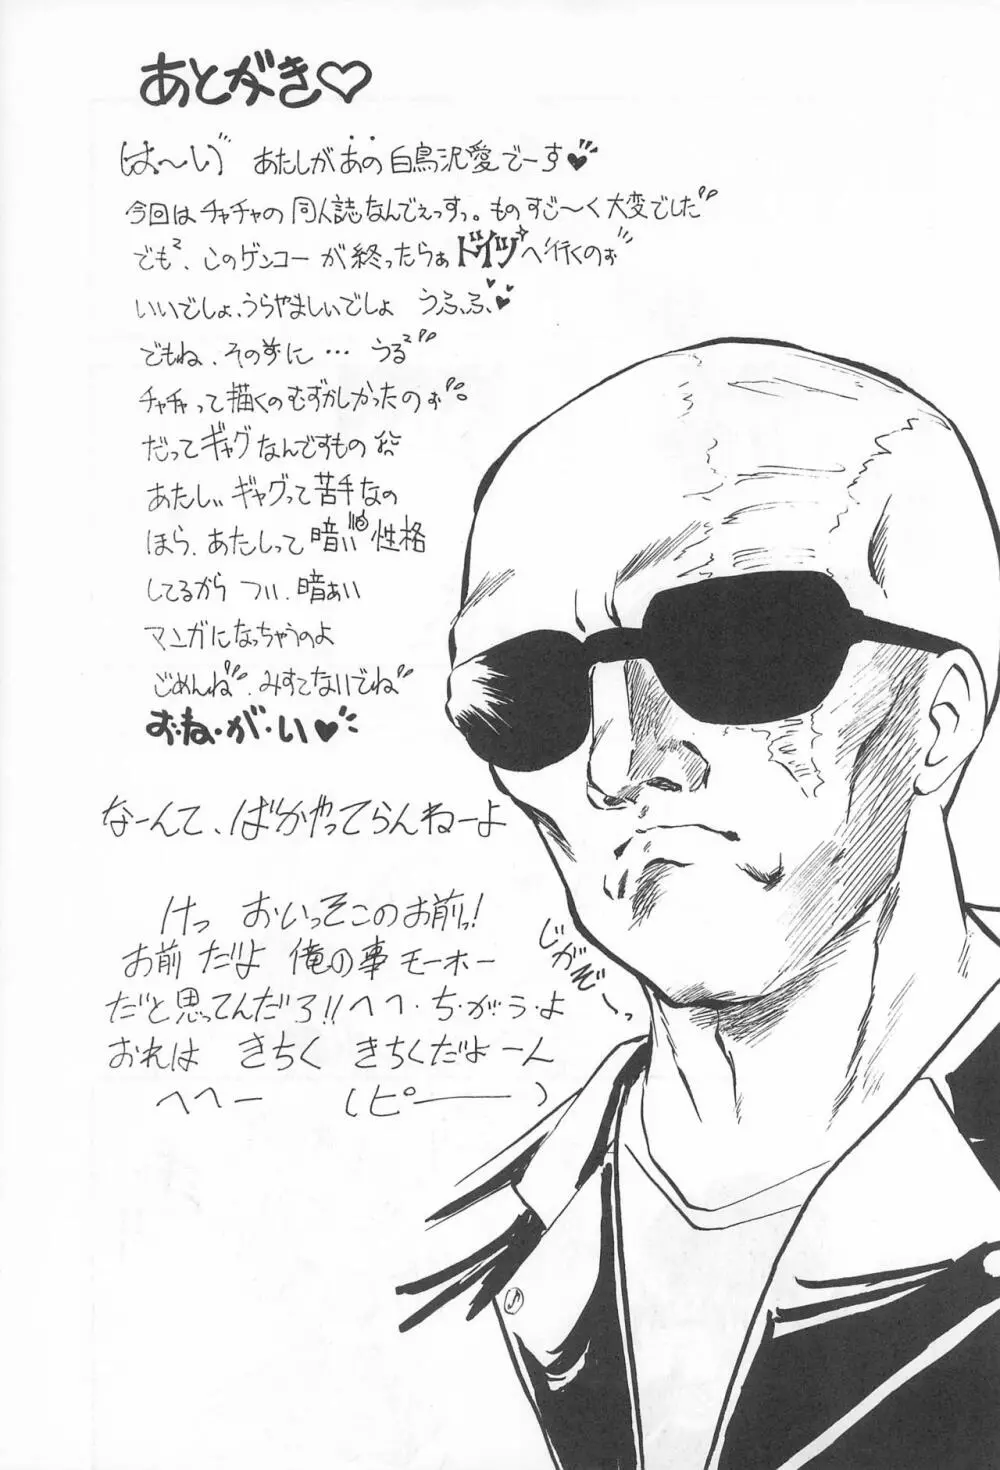 あとがき♡
は〜い゛ あたしがあの白鳥沢愛でーす♥
今回はチャチャの同人誌なんでぇっすっ。ものすご〜く大変でした
でも²、このゲンコーが終ったらぁドイツへ行くのぉ
いいでしょ、うらやましいでしょ うふふ、♥
でもね、その前に…うる²
チャチャって描くのむずかしかったのぉ。
だってギャグなんですもの
あたしぃ ギャグって苦手なの
ほら、あたしって暗い性格
してるから つい、暗ぁい
マンガになっちゃうのよ
ごめんね、みすてないでね
お・ね・が・い♥
なーんて、ばかやってらんねーよ
けっ おいっそこのお前っ!
お前だよ 俺の事モーホー
だと思ってんだろ!!へへ・ち・が・う・よ
おれは きちく きちくだよーん
へへー (ピ――)
じがぞーっ